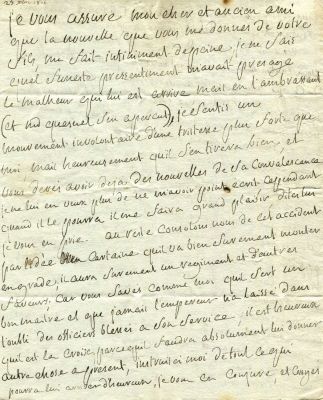 je vous assure mon cher et ancien ami
que la nouvelle que vous me donnes de votre
fils me fait infiniment de peine, je ne sais
quel funeste pressentiment m'avait presagé
le malheur qui lui est arrive mais en l'embrassant
(et nul que nul s'en apercut), je sentis un
mouvement involontaire d'une tristesse plus forte que
moi mais heureusement qu'il s'en tirera bien, et
vous deves avoir deja des nouvelles de sa Convalescence
je ne lui en veux plus de ne m'avoir point ecrit cependant
quand il le pourra il me faira grand plaisir dites lui
je vous en prie. au reste consolons nous de cet accident
par l'idée bien Certaine qu'il va bien surement monter
en grade, il aura surement un regiment et d'autres
faveurs, Car vous saves comme moi qu'il sert un
bon maitre et que jamais l'empereur n'a laissé dans
l'oubli des officiers blessés a son service, il est heureux
qu'il est la Croix, parce qu'il faudra absolument lui donner
autre chose a present, instruises moi de tout ce qui
pourra lui arriver d'heureux, je vous en conjure, et Croyes